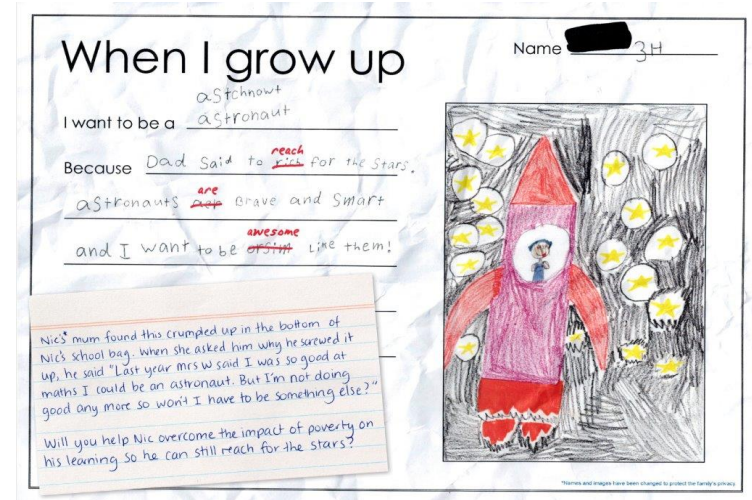 When I grow up
Name 3H
astchnowt
I want to be a astronaut
reach
Because Dad said to rich for the stars.
are
astronauts aer Brave and Smart
awesome
and I want to be orsim like them!
Nic's* mum found this crumpled up in the bottom of
Nic's school bag. When she asked him why he screwed it
up, he said "Last year mrs W said I was so good at
maths I could be an astronaut. But I'm not doing
good any more so won't I have to be something else?"
Will you help Nic overcome the impact of poverty on
his learning so he can still reach for the stars?
*Names and images have been changed to protect the family's privacy